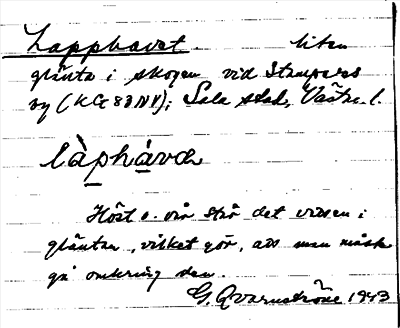 Lapphavet. liten
glänta i skogen vid Stampers
by (KG 88NV); Sala stad, Västm. l.
làphàvα
Höst o. vår står det vatten i
gläntan, vilket gör, att man måste
gå omkring den.
G. Qvarnström 1943